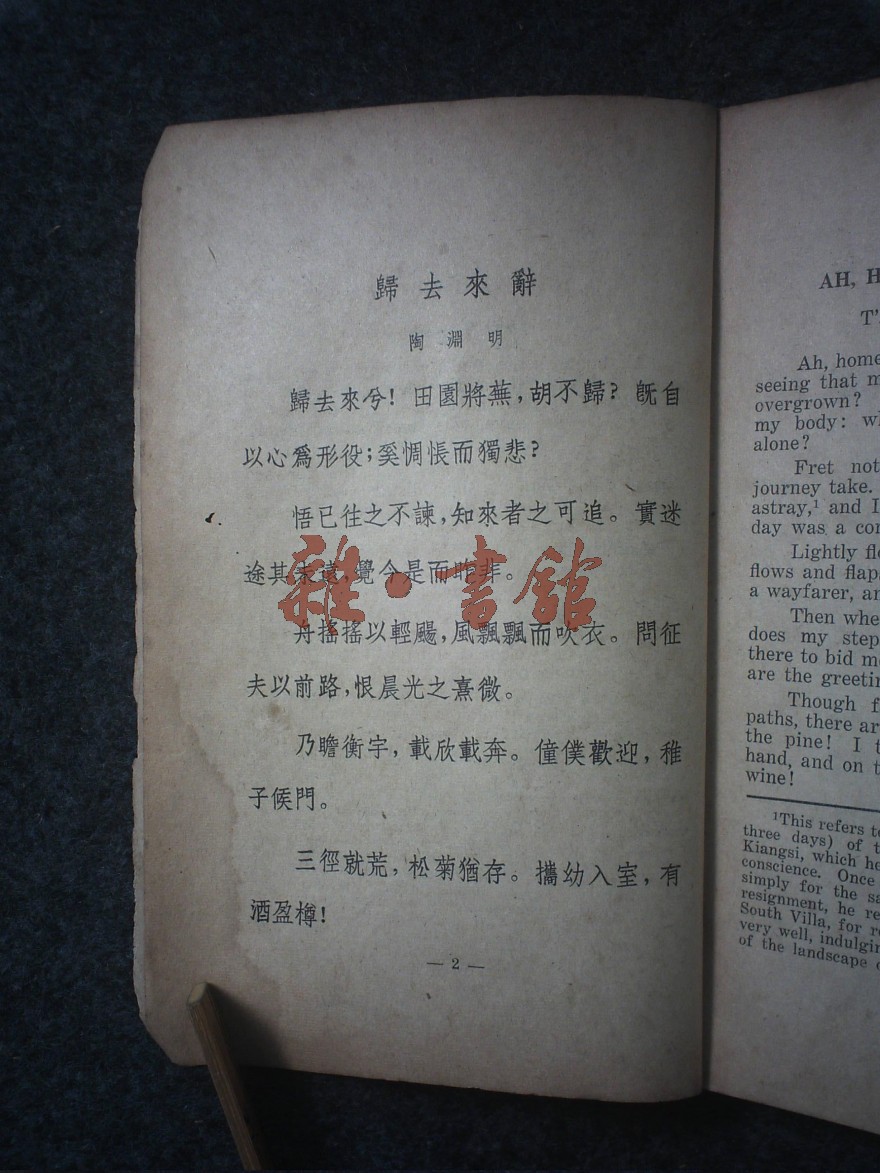 歸去來辭
陶淵明
歸去來兮！田園將蕪，胡不歸？旣自
以心爲形役；奚惆悵而獨悲？
悟已往之不諫，知來者之可追。實迷
途其未遠，覺今是而昨非。
舟搖搖以輕颺，風飄飄而吹衣。問征
夫以前路，恨晨光之熹微。
乃瞻衡宇，載欣載奔。僮僕歡迎，稚
子候門。
三徑就荒，松菊猶存。攜幼入室，有
酒盈樽！
— 2 —
雜·書館
AH, H
T'
Ah, home
seeing that m
overgrown?
my body: wh
alone?
Fret not
journey take.
astray,¹ and I
day was a con
Lightly flo
flows and flap
a wayfarer, an
Then whe
does my step
there to bid me
are the greetin
Though f
paths, there ar
the pine! I t
hand, and on t
wine!
¹This refers to
three days) of t
Kiangsi, which he
conscience. Once
simply for the sa
resignment, he re
South Villa, for re
very well, indulgin
of the landscape o